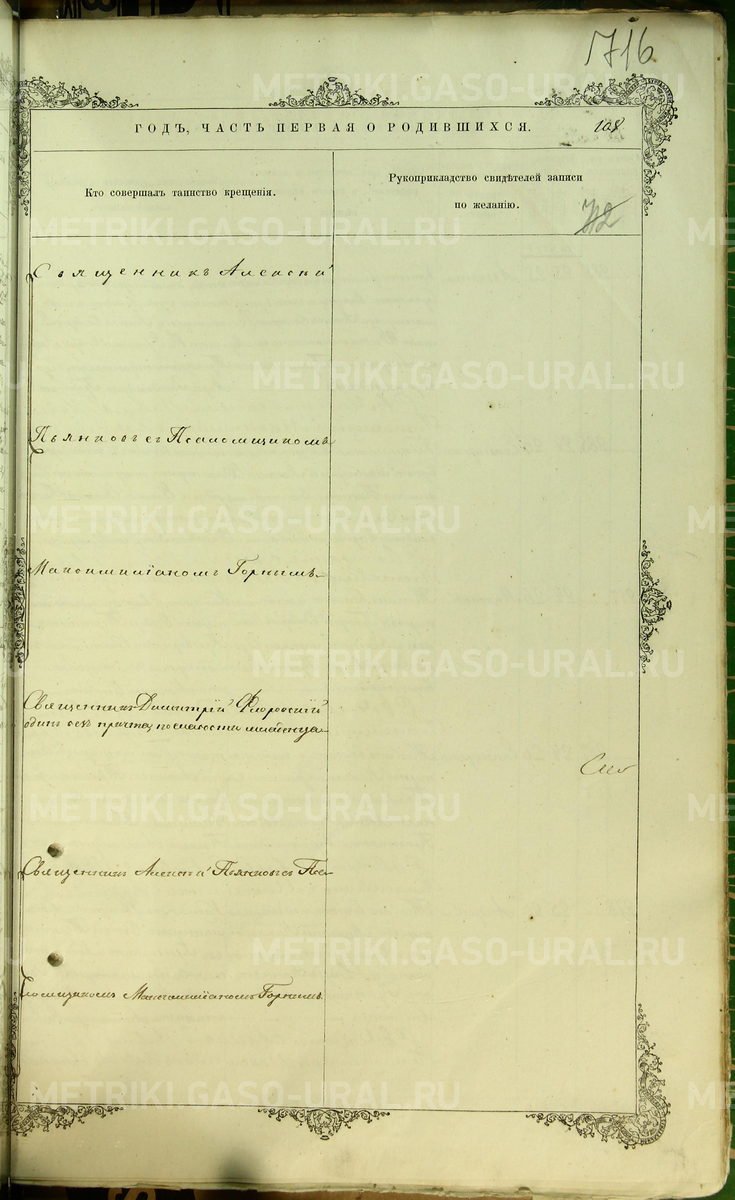 716
ГОДЪ, ЧАСТЬ ПЕРВАЯ О РОДИВШИХСЯ.
108
Кто совершалъ таинство крещенія.
Рукоприкладство свидѣтелей записи
по желанію.
712
Священникъ Алексѣй
Пьянковъ съ Псаломщикомъ
Максимиліаномъ Горнымъ.
Священникъ Димитрій Флоровскій
одинъ безъ причта, по слабости младенца
Священникъ Алексѣй Пьянковъ съ Пса-
ломщикомъ Максимиліаномъ Горнымъ.
METRIKI.GASO-URAL.RU